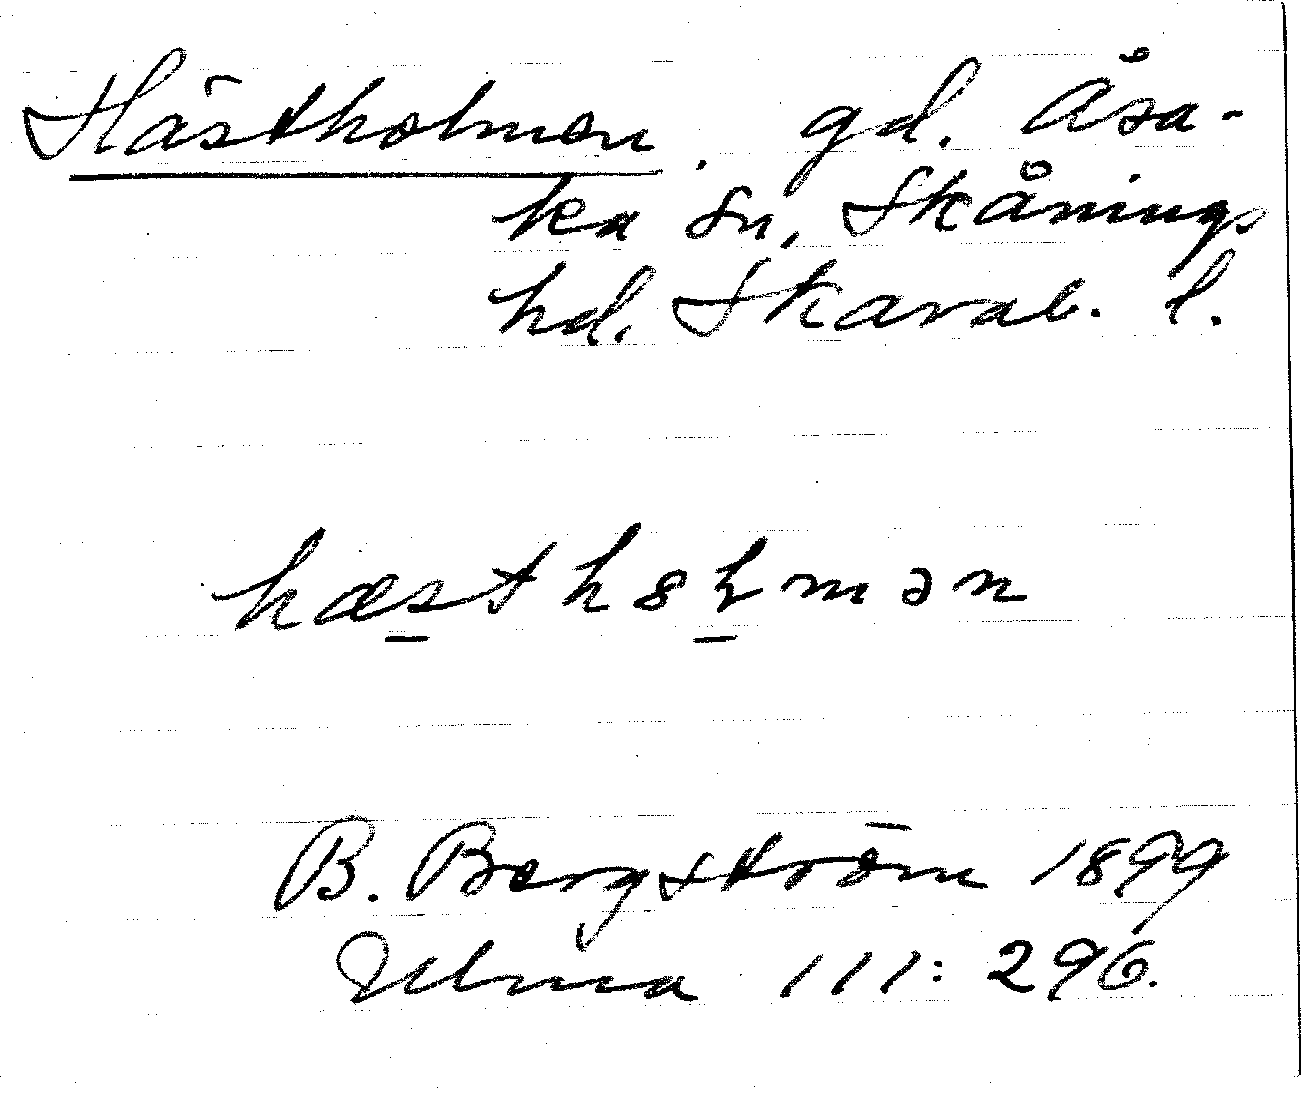 Hästholmen. gd. Åsa-
ka sn, Skånings
hd. Skarab. l.
hæsthꝏɫmən
B. Bergström 1899
Ulma 111: 296.